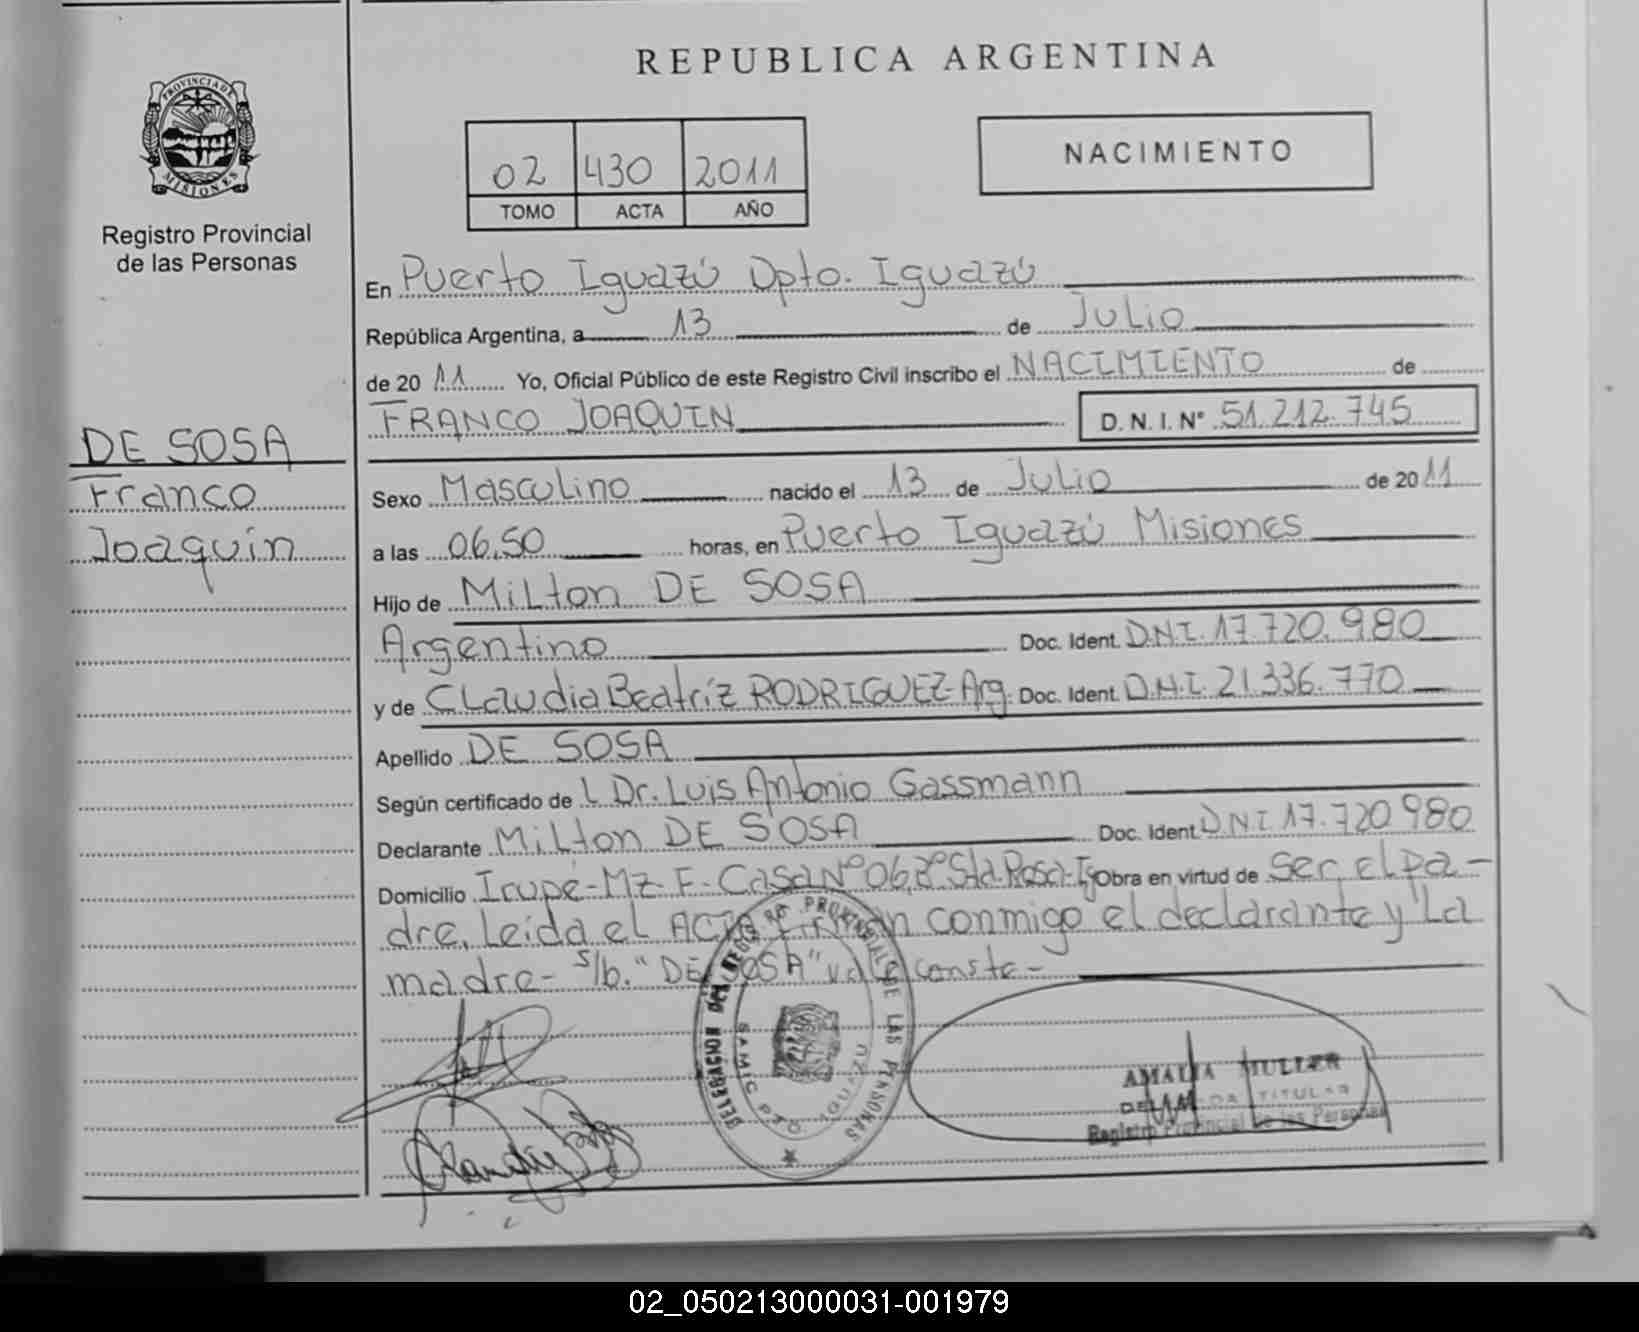 REPUBLICA ARGENTINA
PROVINCIA DE
MISIONES
Registro Provincial
de las Personas
02 430 2011
TOMO ACTA AÑO
NACIMIENTO
En Puerto Iguazú Dpto. Iguazú
República Argentina, a 13 de Julio
de 2011 Yo, Oficial Público de este Registro Civil inscribo el NACIMIENTO de
FRANCO JOAQUIN D. N. I. N° 51.212.745
DE SOSA
Franco
Joaquín
Sexo Masculino nacido el 13 de Julio de 2011
a las 06,50 horas, en Puerto Iguazú Misiones
Hijo de Milton DE SOSA
Argentino Doc. Ident. D.N.I. 17.720.980
y de Claudia Beatríz RODRIGUEZ-Arg. Doc. Ident. D.N.I. 21.336.770
Apellido DE SOSA
Según certificado de l Dr. Luis Antonio Gassmann
Declarante Milton DE SOSA Doc. Ident. DNI 17.720980
Domicilio Irupé-Mz. F-Casa N° 06, Sta. Rosa-Ig Obra en virtud de ser el pa-
dre, Leída el ACTA Firman conmigo el declarante y La
madre- s/b. "DE SOSA" vale conste-
DELEGACION DEL REGISTRO PROVINCIAL DE LAS PERSONAS
SAMIC PTO. IGUAZU
AMALIA MULLER
DELEGADA TITULAR
Registro Provincial de las Personas
02_050213000031-001979